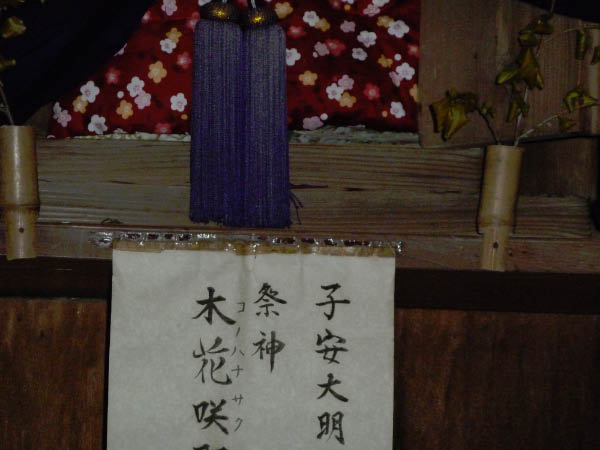 子安大明
祭神
木花咲
コノハナサク